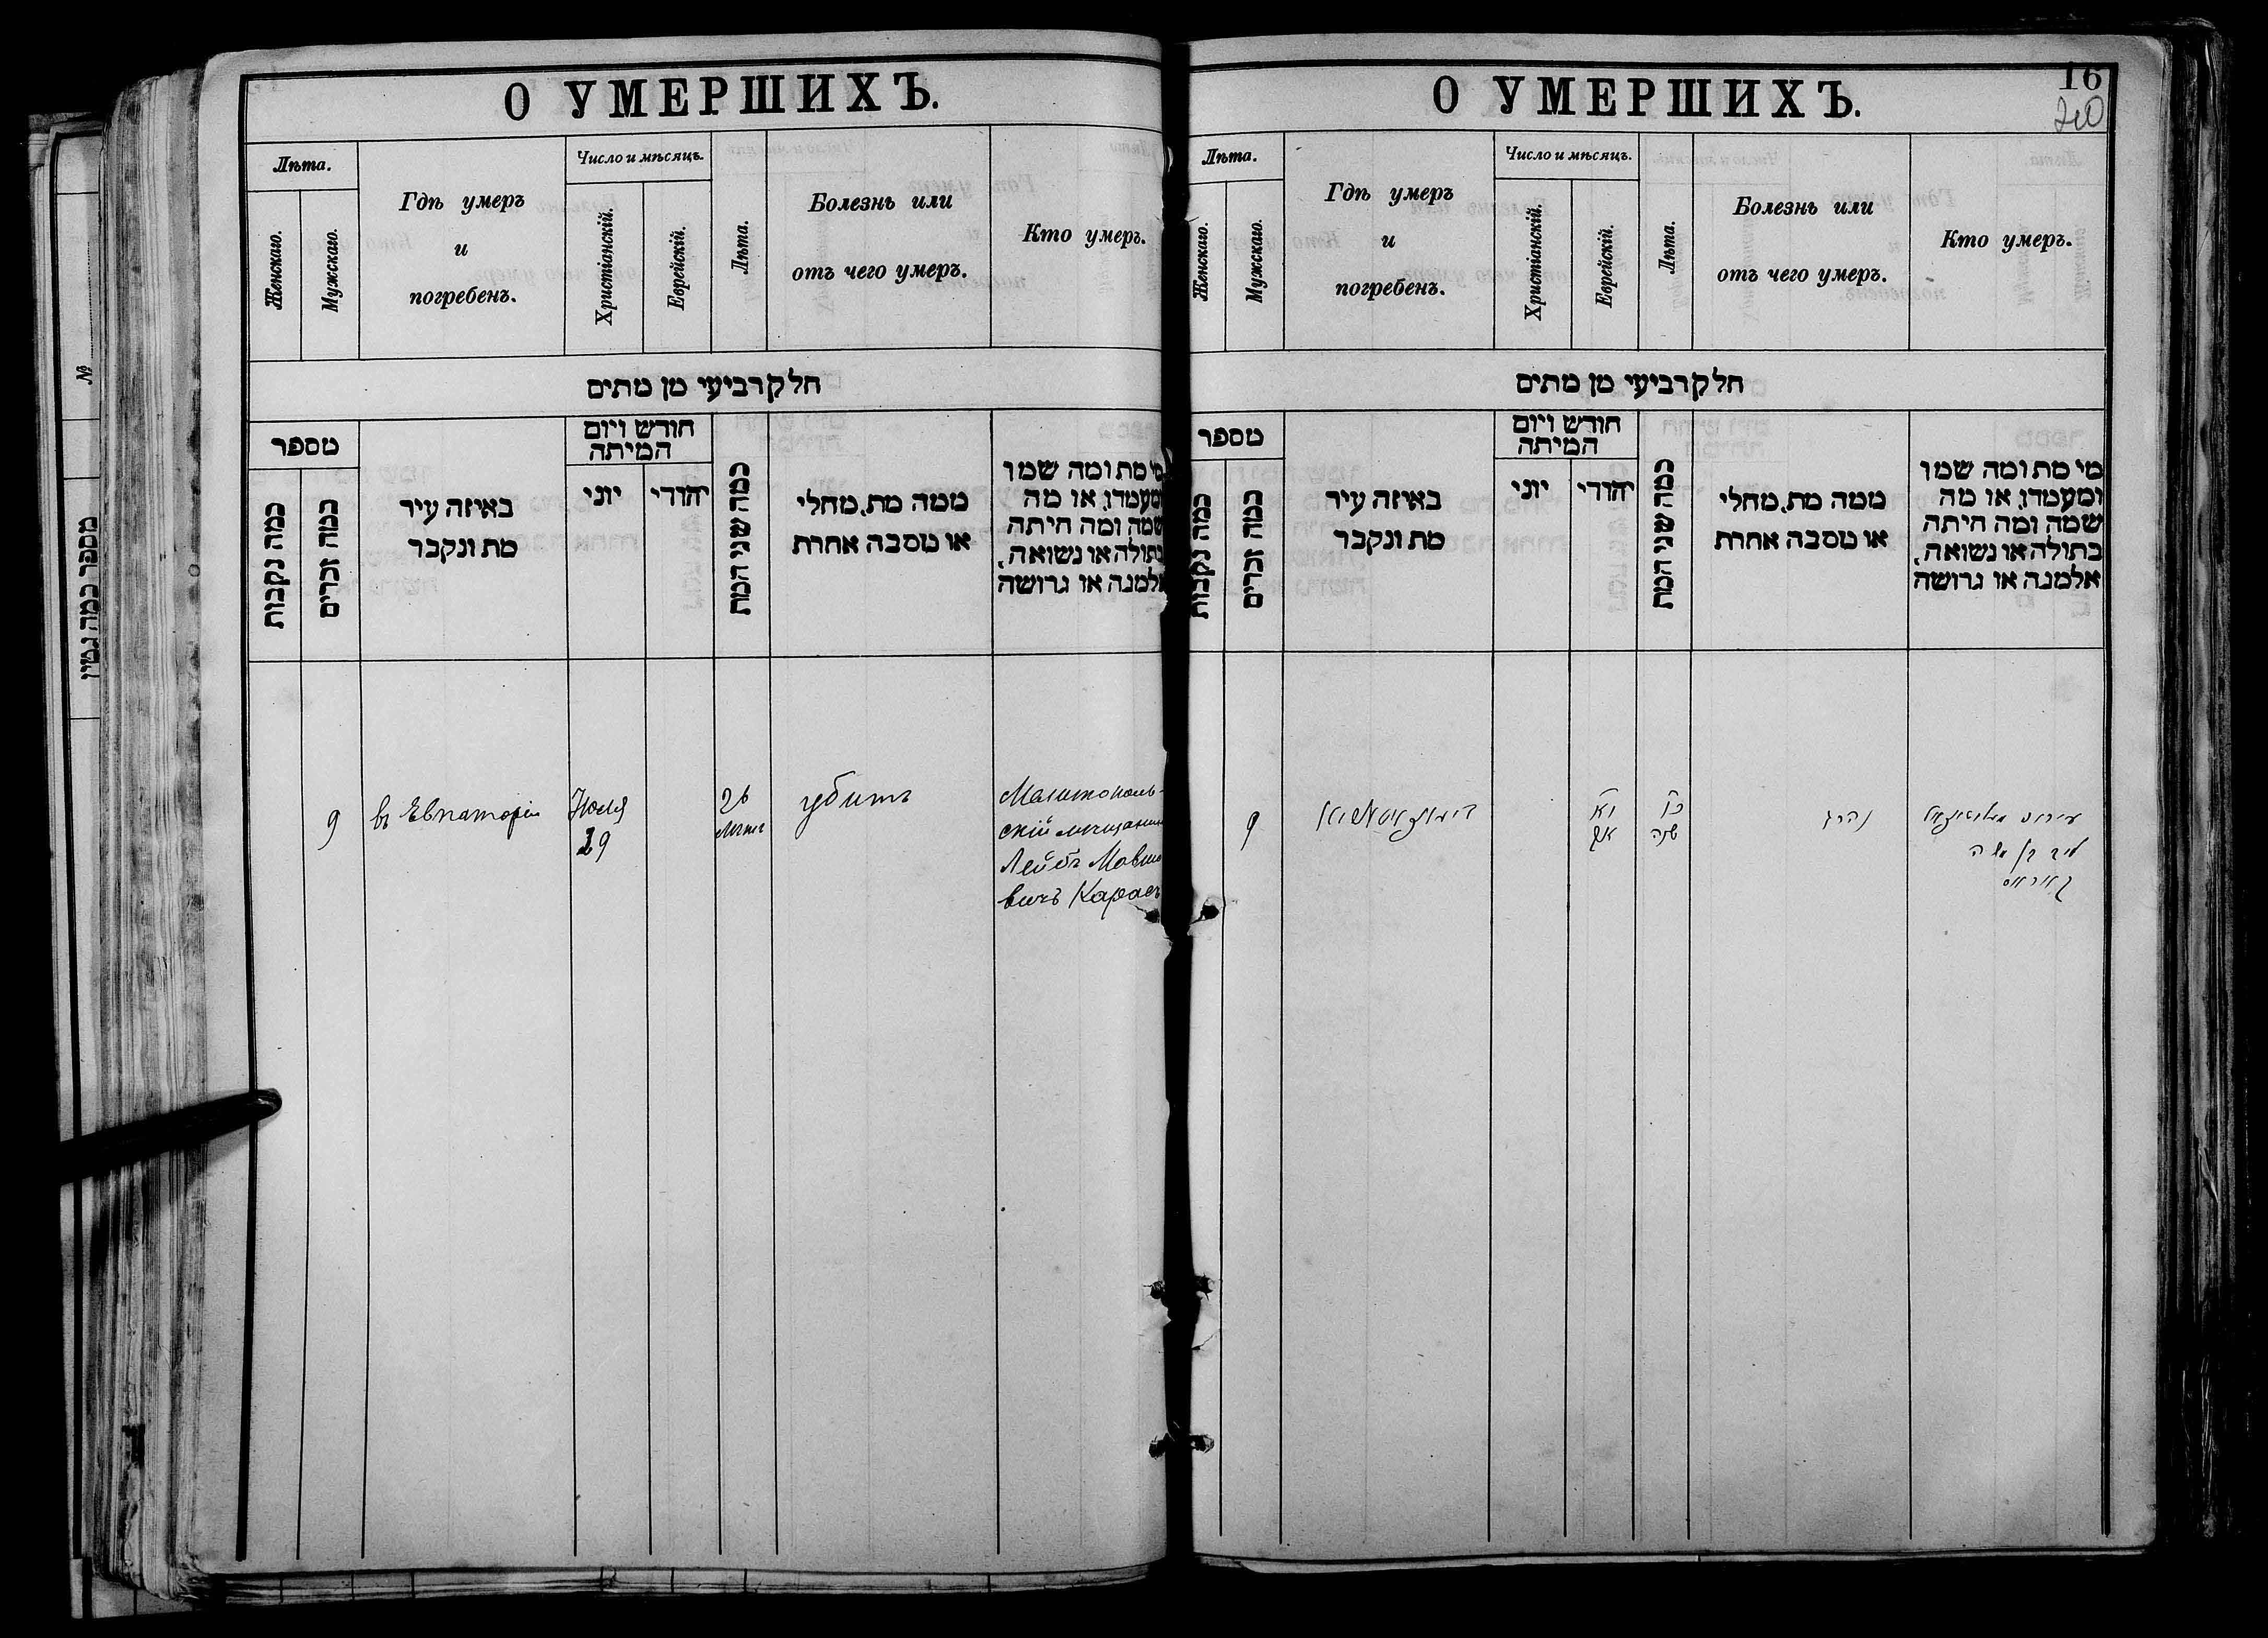 О УМЕРШИХЪ.
Лѣта.
Женскаго.
Мужскаго.
Гдѣ умеръ
и
погребенъ.
Число и мѣсяцъ.
Христіанскій.
Еврейскій.
Лѣта.
Болезнь или
отъ чего умеръ.
Кто умеръ.
חלק רביעי מן מתים
מספר
כמה נקבות
כמה זכרים
באיזה עיר
מת ונקבר
חודש ויום
המיתה
יוני
יהודי
כמה שני המת
ממה מת, מחלי
או מסבה אחרת
מי מת ומה שמו
ומעמדו, או מה
שמה ומה היתה
בתולה או נשואה,
אלמנה או גרושה
9
въ Евпаторіи
Июля
29
26
лѣтъ
убитъ
Мелитополь-
скій мѣщанин
Лейбъ Мовшо
вичъ Карась
16
20
О УМЕРШИХЪ.
Лѣта.
Женскаго.
Мужскаго.
Гдѣ умеръ
и
погребенъ.
Число и мѣсяцъ.
Христіанскій.
Еврейскій.
Лѣта.
Болезнь или
отъ чего умеръ.
Кто умеръ.
חלק רביעי מן מתים
מספר
כמה נקבות
כמה זכרים
באיזה עיר
מת ונקבר
חודש ויום
המיתה
יוני
יהודי
כמה שני המת
ממה מת, מחלי
או מסבה אחרת
מי מת ומה שמו
ומעמדו, או מה
שמה ומה היתה
בתולה או נשואה,
אלמנה או גרושה
9
אב
שנה
נהרג
ליב בן משה
קאראס
№
מספר כמה גטין